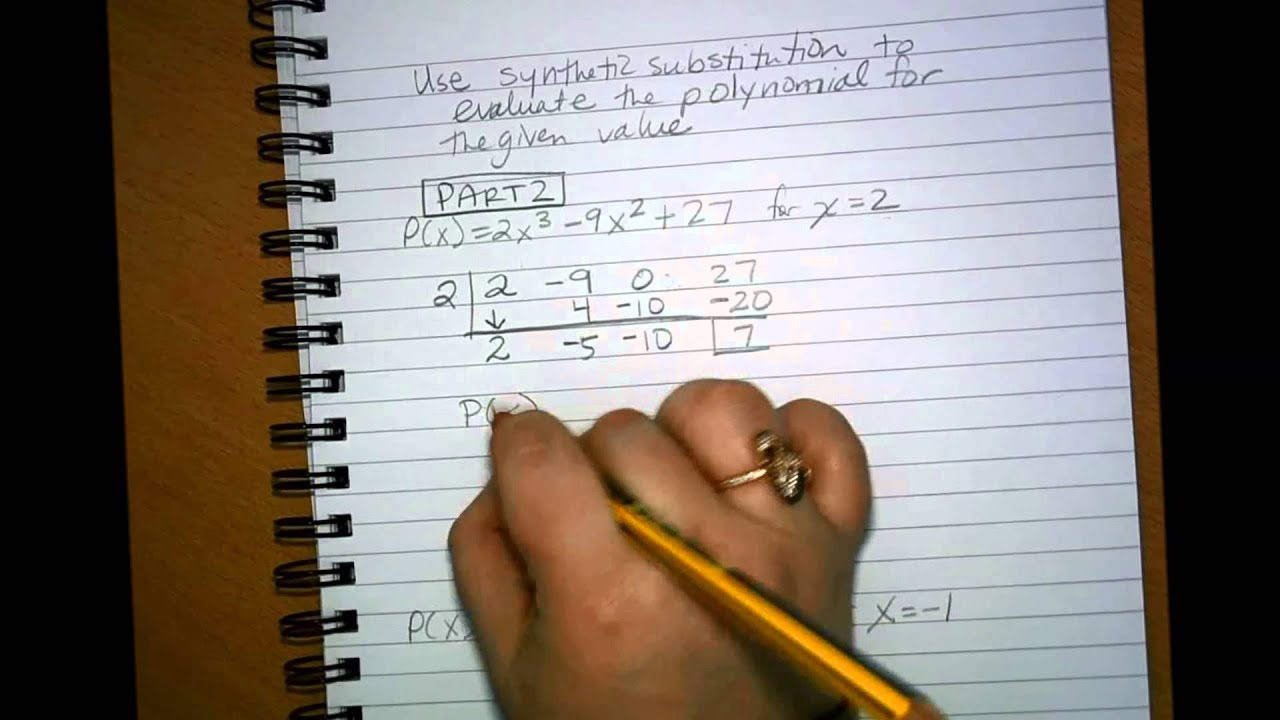 Use synthetic substitution to
evaluate the polynomial for
the given value
PART 2
P(x)=2x³-9x²+27 for x=2
2 2 -9 0 27
4 -10 -20
↓
2 -5 -10 7
P(x)
P(x) x=-1